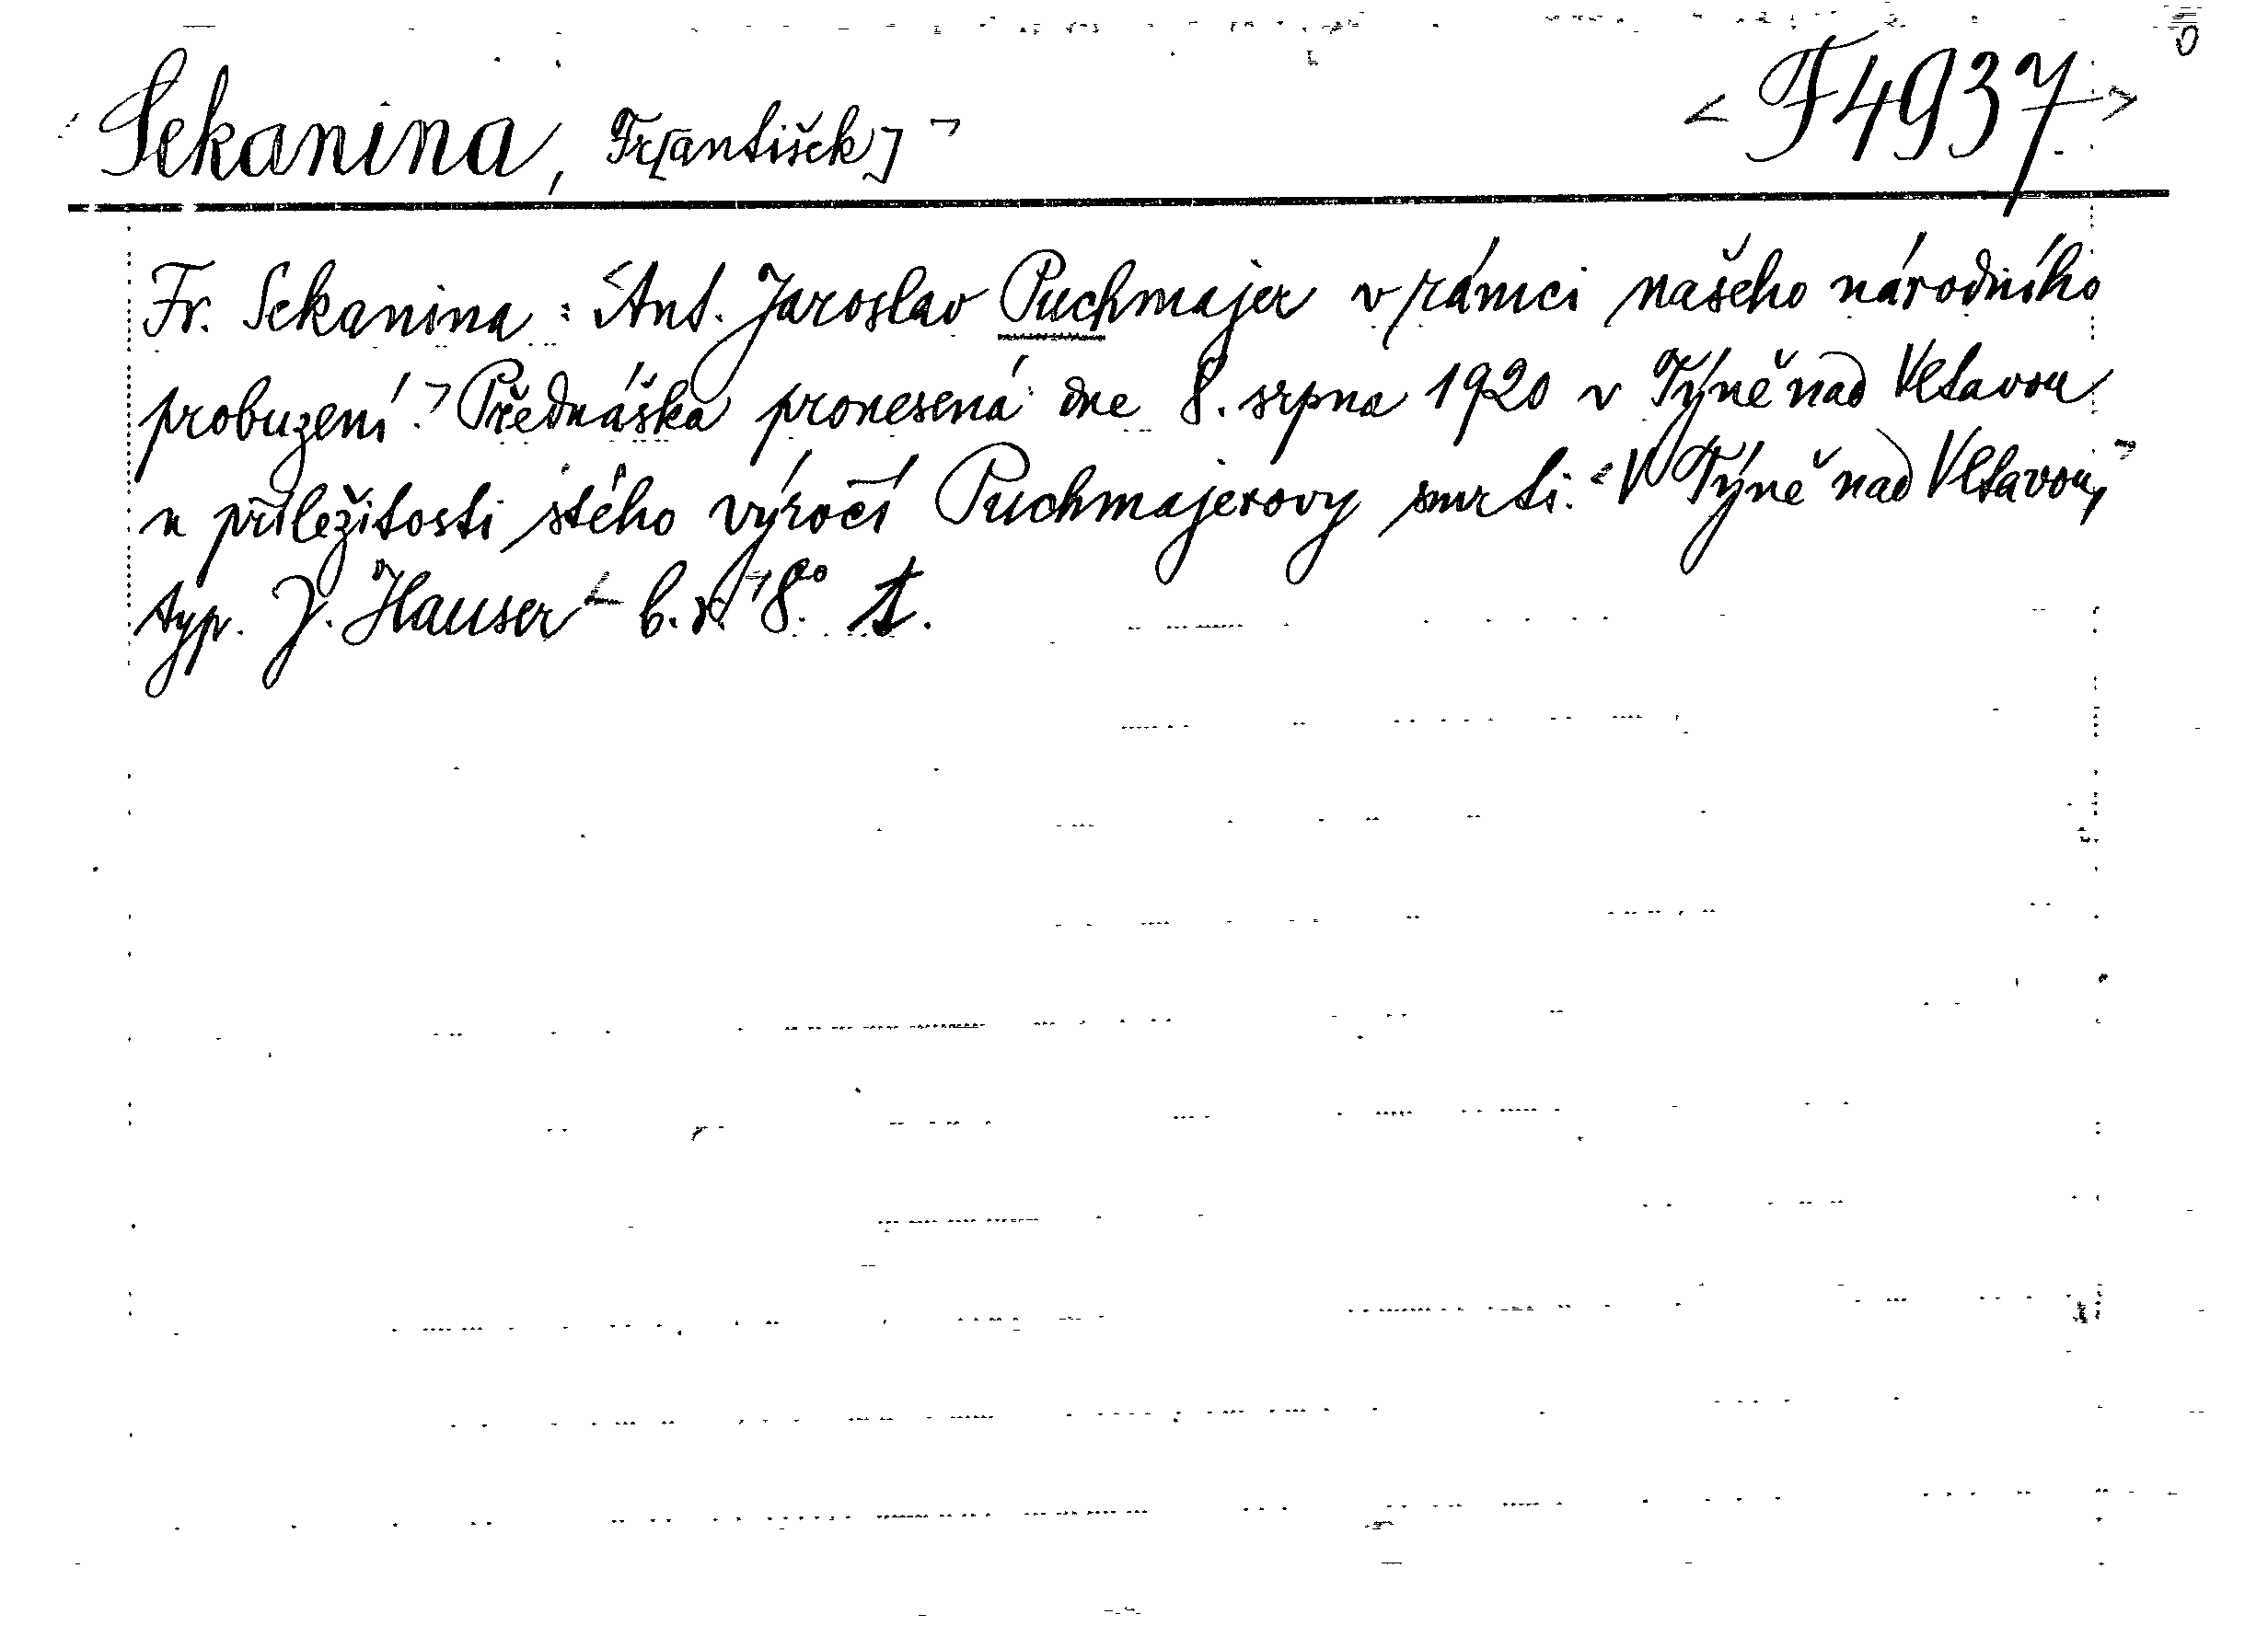 Sekanina, Fr[antišek] <F4937>
Fr. Sekanina: Ant. Jaroslav Puchmajer v rámci našeho národního
probuzení. Přednáška pronesená dne 8. srpna 1920 v Týně nad Vltavou
u příležitosti stého výročí Puchmajerovy smrti. V Týně nad Vltavou,
typ. J. Hauser b. r. 8°.